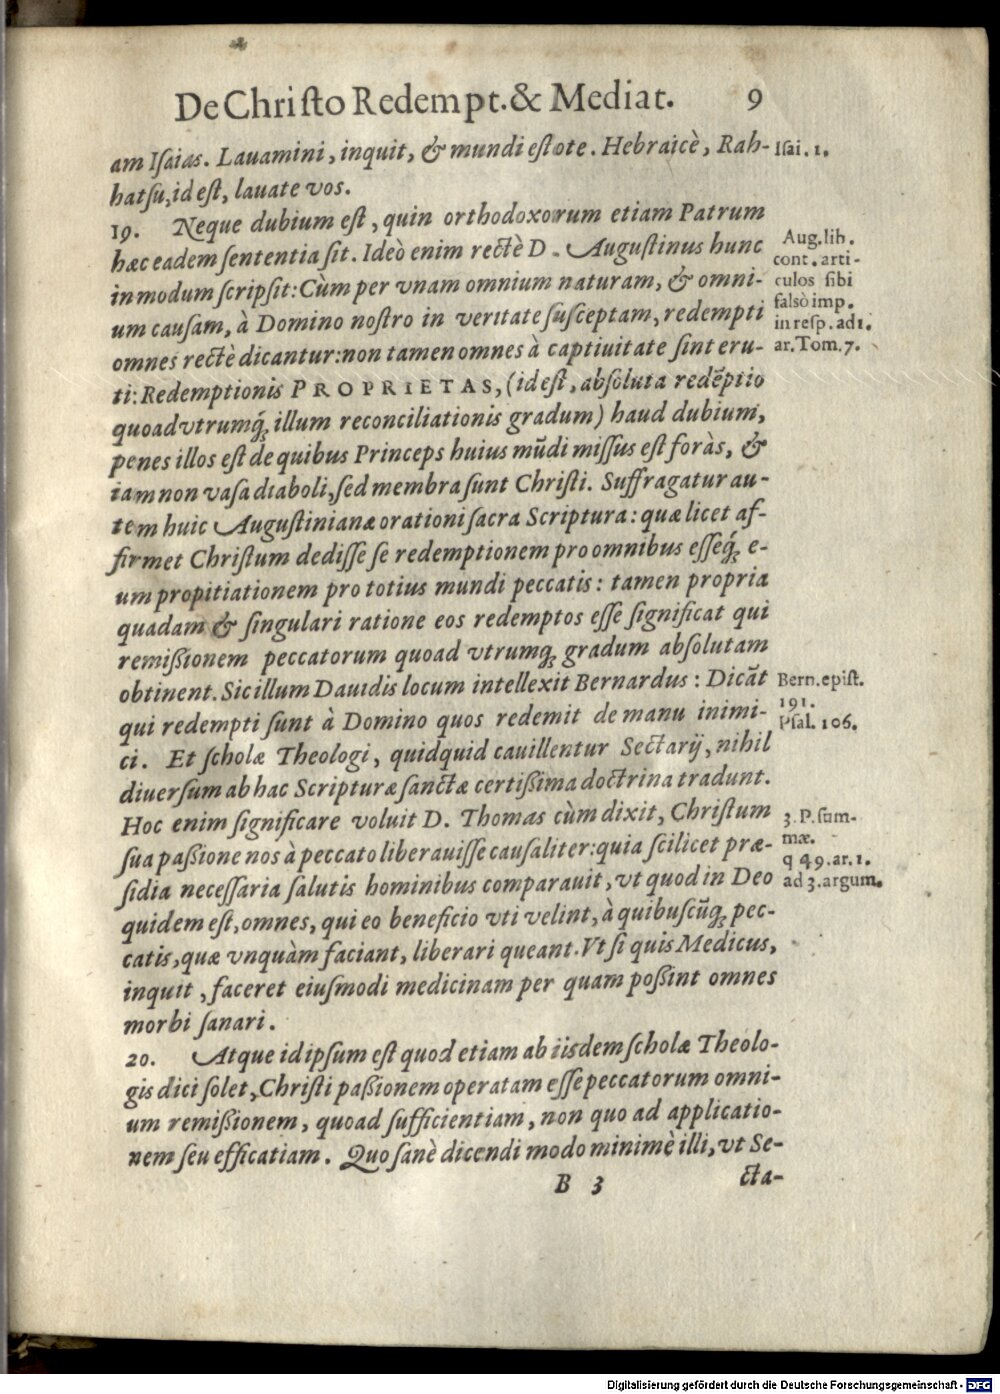 De Christo Redempt. & Mediat. 9
am Isaias. Lauamini, inquit, & mundi estote. Hebraicè, Rah-
hatsu, id est, lauate vos.
Isai. 1.
19. Neque dubium est, quin orthodoxorum etiam Patrum
hæc eadem sententia sit. Ideò enim rectè D. Augustinus hunc
in modum scripsit: Cùm per vnam omnium naturam, & omni-
um causam, à Domino nostro in veritate susceptam, redempti
omnes rectè dicantur: non tamen omnes à captiuitate sint eru-
ti: Redemptionis PROPRIETAS, (id est, absoluta redēptio
quoad vtrumq́; illum reconciliationis gradum) haud dubium,
penes illos est de quibus Princeps huius mūdi missus est foràs, &
iam non vasa diaboli, sed membra sunt Christi. Suffragatur au-
tem huic Augustinianæ orationi sacra Scriptura: quæ licet af-
firmet Christum dedisse se redemptionem pro omnibus esseq́; e-
um propitiationem pro totius mundi peccatis: tamen propria
quadam & singulari ratione eos redemptos esse significat qui
remißionem peccatorum quoad vtrumq; gradum absolutam
obtinent. Sic illum Dauidis locum intellexit Bernardus: Dicāt
qui redempti sunt à Domino quos redemit de manu inimi-
ci. Et scholæ Theologi, quidquid cauillentur Sectarij, nihil
diuersum ab hac Scripturæ sanctæ certißima doctrina tradunt.
Hoc enim significare voluit D. Thomas cùm dixit, Christum
sua paßione nos à peccato liberauisse causaliter: quia scilicet præ-
sidia necessaria salutis hominibus comparauit, vt quod in Deo
quidem est, omnes, qui eo beneficio vti velint, à quibuscūq; pec-
catis, quæ vnquàm faciant, liberari queant. Vt si quis Medicus,
inquit, faceret eiusmodi medicinam per quam poßint omnes
morbi sanari.
Aug. lib.
cont. arti-
culos sibi
falsò imp.
in resp. ad 1.
ar. Tom. 7.
Bern. epist.
191.
Psal. 106.
3. P. sum-
mæ.
q 49. ar. 1.
ad 3. argum.
20. Atque id ipsum est quod etiam ab iisdem scholæ Theolo-
gis dici solet, Christi paßionem operatam esse peccatorum omni-
um remißionem, quoad sufficientiam, non quo ad applicatio-
nem seu efficatiam. Quo sanè dicendi modo minimè illi, vt Se-
B 3 cta-
Digitalisierung gefördert durch die Deutsche Forschungsgemeinschaft - DFG